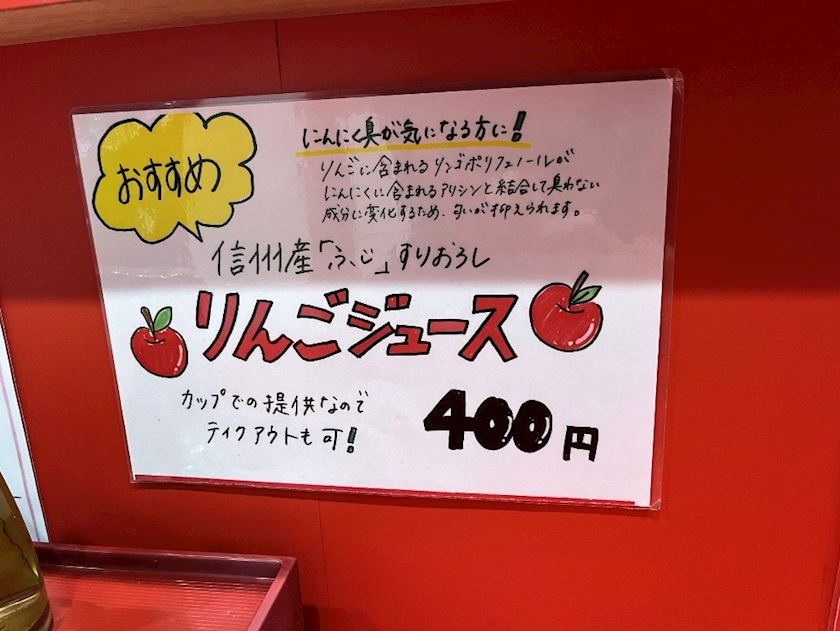 おすすめ
にんにく臭が気になる方に!
りんごに含まれるリンゴポリフェノールが
にんにくに含まれるアリシンと結合して臭わない
成分に変化するため、匂いが抑えられます。
信州産「ふじ」すりおろし
りんごジュース
カップでの提供なので
テイクアウトも可!
400円